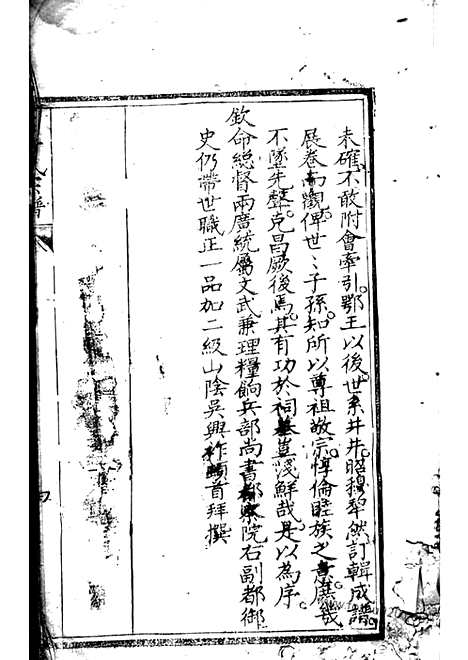 未確不敢附會牽引鄂王以後世系井井昭穆犂然訂輯成譜
展卷而觀俾世〻子孫知所以尊祖敬宗惇倫睦族之意庶幾
不墜先聲克昌厥後焉其有功於祠墓豈淺鮮哉是以為序
欽命總督兩廣統屬文武兼理糧餉兵部尚書都察院右副都御
史仍帶世職正一品加二級山陰吳興祚頓首拜撰
氏宗譜